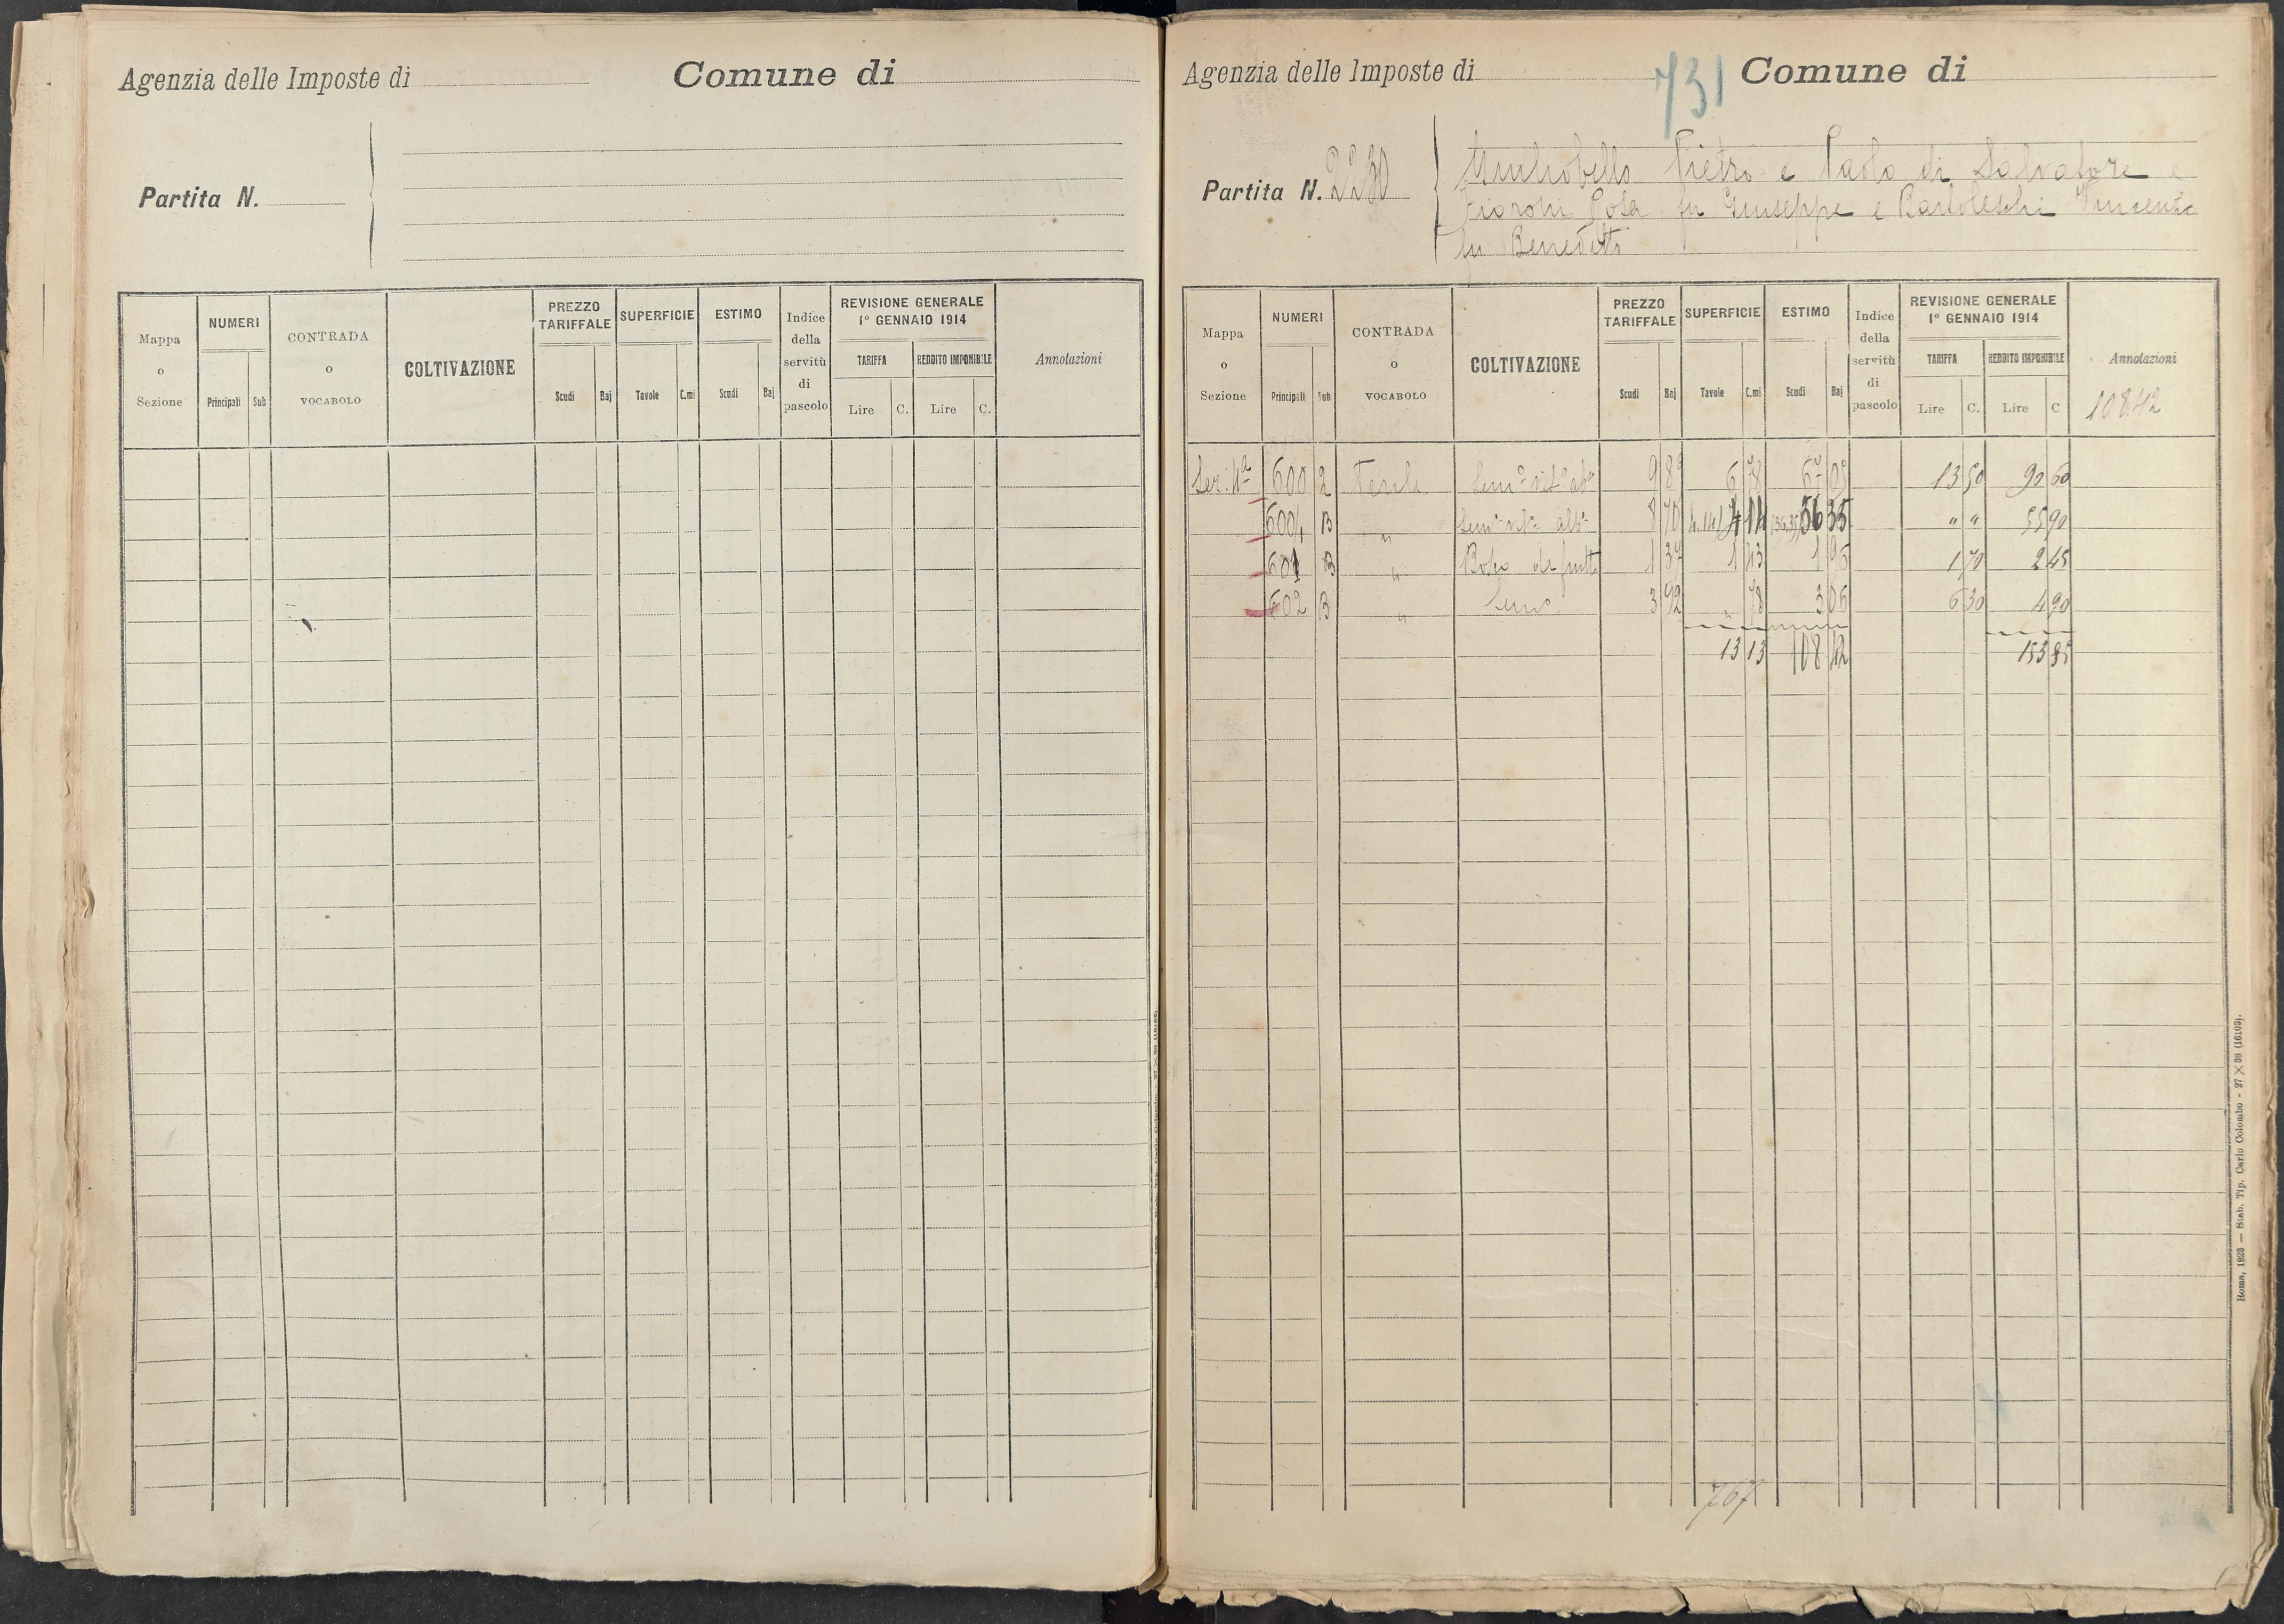 Agenzia delle Imposte di
Comune di
Partita N.
Mappa o Sezione
NUMERI
Principali
Sub
CONTRADA o VOCABOLO
COLTIVAZIONE
PREZZO TARIFFALE
Scudi
Baj
SUPERFICIE
Tavole
C.mi
ESTIMO
Scudi
Baj
Indice della servitù di pascolo
REVISIONE GENERALE
1° GENNAIO 1914
TARIFFA
REDDITO IMPONIBILE
Lire
C.
Lire
C.
Annotazioni
Agenzia delle Imposte di
731
Comune di
Partita N. 2230
Pietro e Paolo di Salvatore e
Rosa fu Giuseppe e Bartoleschi Vincenzo
fu Benedetto
Mappa o Sezione
NUMERI
Principali
Sub
CONTRADA o VOCABOLO
COLTIVAZIONE
PREZZO TARIFFALE
Scudi
Baj
SUPERFICIE
Tavole
C.mi
ESTIMO
Scudi
Baj
Indice della servitù di pascolo
REVISIONE GENERALE
1° GENNAIO 1914
TARIFFA
REDDITO IMPONIBILE
Lire
C.
Lire
C
Annotazioni
108.42
600 2 6 78 13 50 90 60
B 8 70 " " 55 90
601 B " Bosco da frutto 1 37 1 43 1 96 1 70 2 45
602 B " Semo 3 92 " 78 3 06 6 30 4 90
13 13 108 42 153 85
767
Roma, 1923 — Stab. Tip. Carlo Colombo - 27 × 38 (16103).